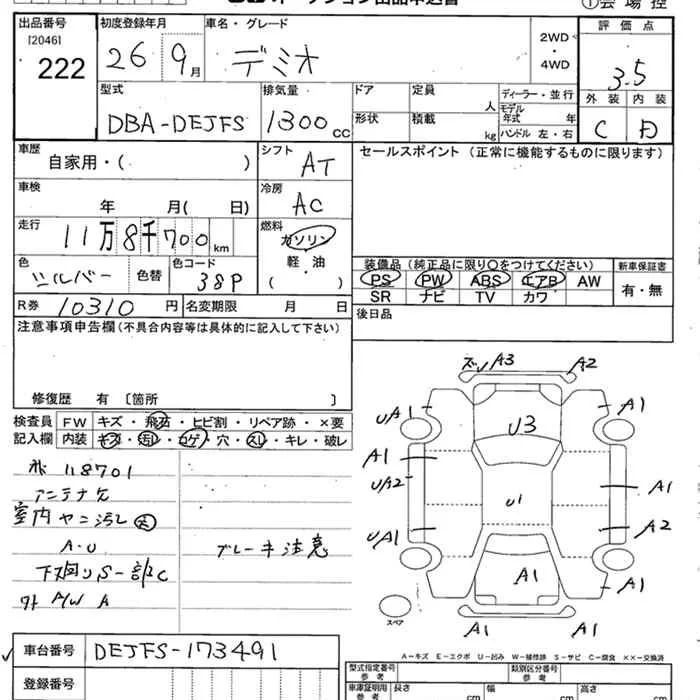 オークション出品申込書
①会場控
出品番号 初度登録年月 車名・グレード 評価点
[2046]
222
26 9月 デミオ
2WD・
4WD
3.5
外装 内装
C D
型式 排気量 ドア 定員 人 ディーラー・並行
DBA-DEJFS 1300cc 形状 積載 kg モデル年式 年
ハンドル 左・右
車歴 自家用・( )
シフト AT
セールスポイント (正常に機能するものに限ります)
車検 年 月( 日)
冷房 AC
走行 11万8千700km
燃料 ガソリン
軽・油
( )
色 シルバー 色替 色コード 38P
装備品 (純正品に限り○をつけてください) 新車保証書
PS PW ABS エアB AW
SR ナビ TV カワ
有・無
R券 10310円 名変期限 月 日
後日品
注意事項申告欄(不具合内容等は具体的に記入して下さい)
修復歴 有 〔箇所 〕
検査員 FW キズ・飛石・ヒビ割・リペア跡・×要
記入欄 内装 キズ・汚レ・コゲ・穴・スレ・キレ・破レ
118701
アンテナ欠
室内ヤニ汚レ 大
A-U
下廻りS-部C
外 A/W A
ブレーキ注意
ズレ A3 A2
UA1 A1
U3
A1
UA2
U1
A1
UA1 A2
A1 A1
スペア
A1 A1
A-キズ E-エクボ U-凹み W-補修跡 S-サビ C-腐食 ××-交換済
車台番号 DEJFS-173491
登録番号
型式指定番号 参考
類別区分番号 参考
車庫証明用 参考 長さ cm 幅 cm 高さ cm